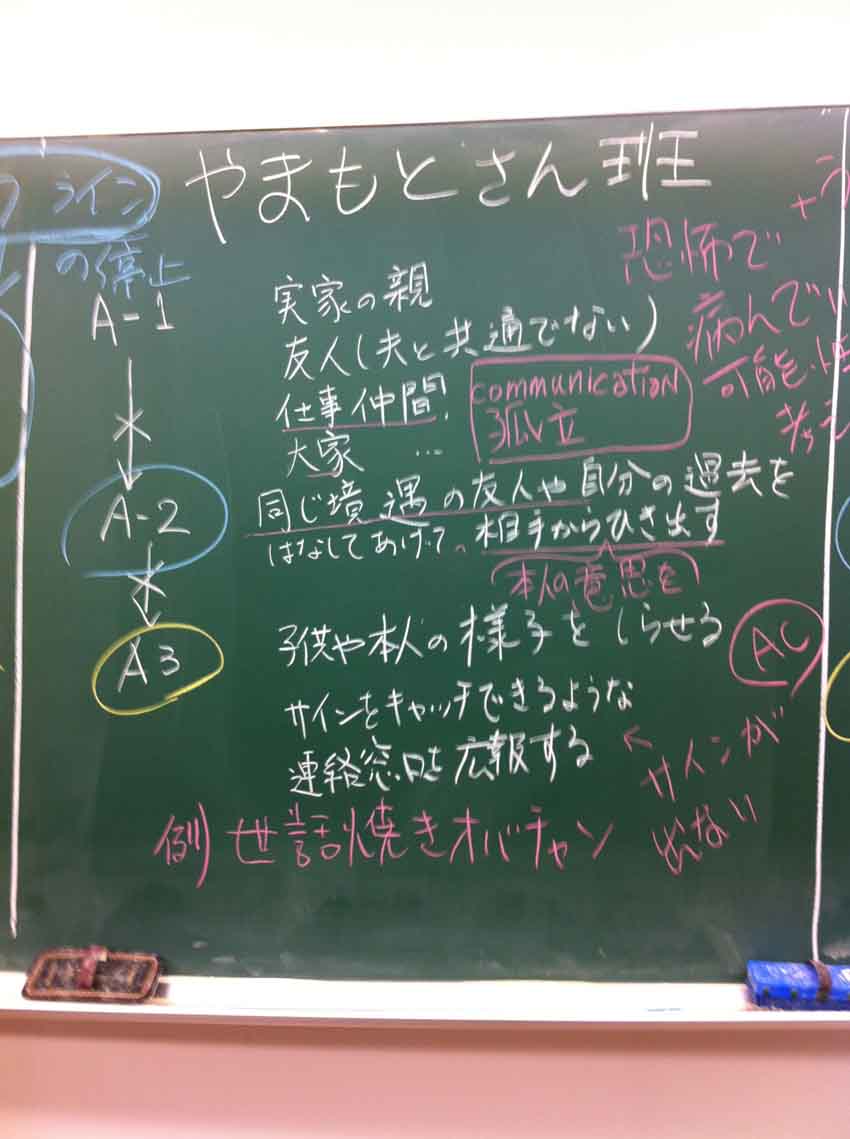 やまもとさん班
ライン
の停止
A-1
A-2
A3
実家の親
友人(夫と共通でない)
仕事仲間.
大家 …
communication
孤立
恐怖で
病んでい
可能性
考え
同じ境遇の友人や自分の過去を
はなしてあげて。相手からひき出す
本人の意思を
子供や本人の様子をしらせる
AC
サインをキャッチできるような
連絡窓口を広報する
←サインが
でない
例)世話焼きオバチャン